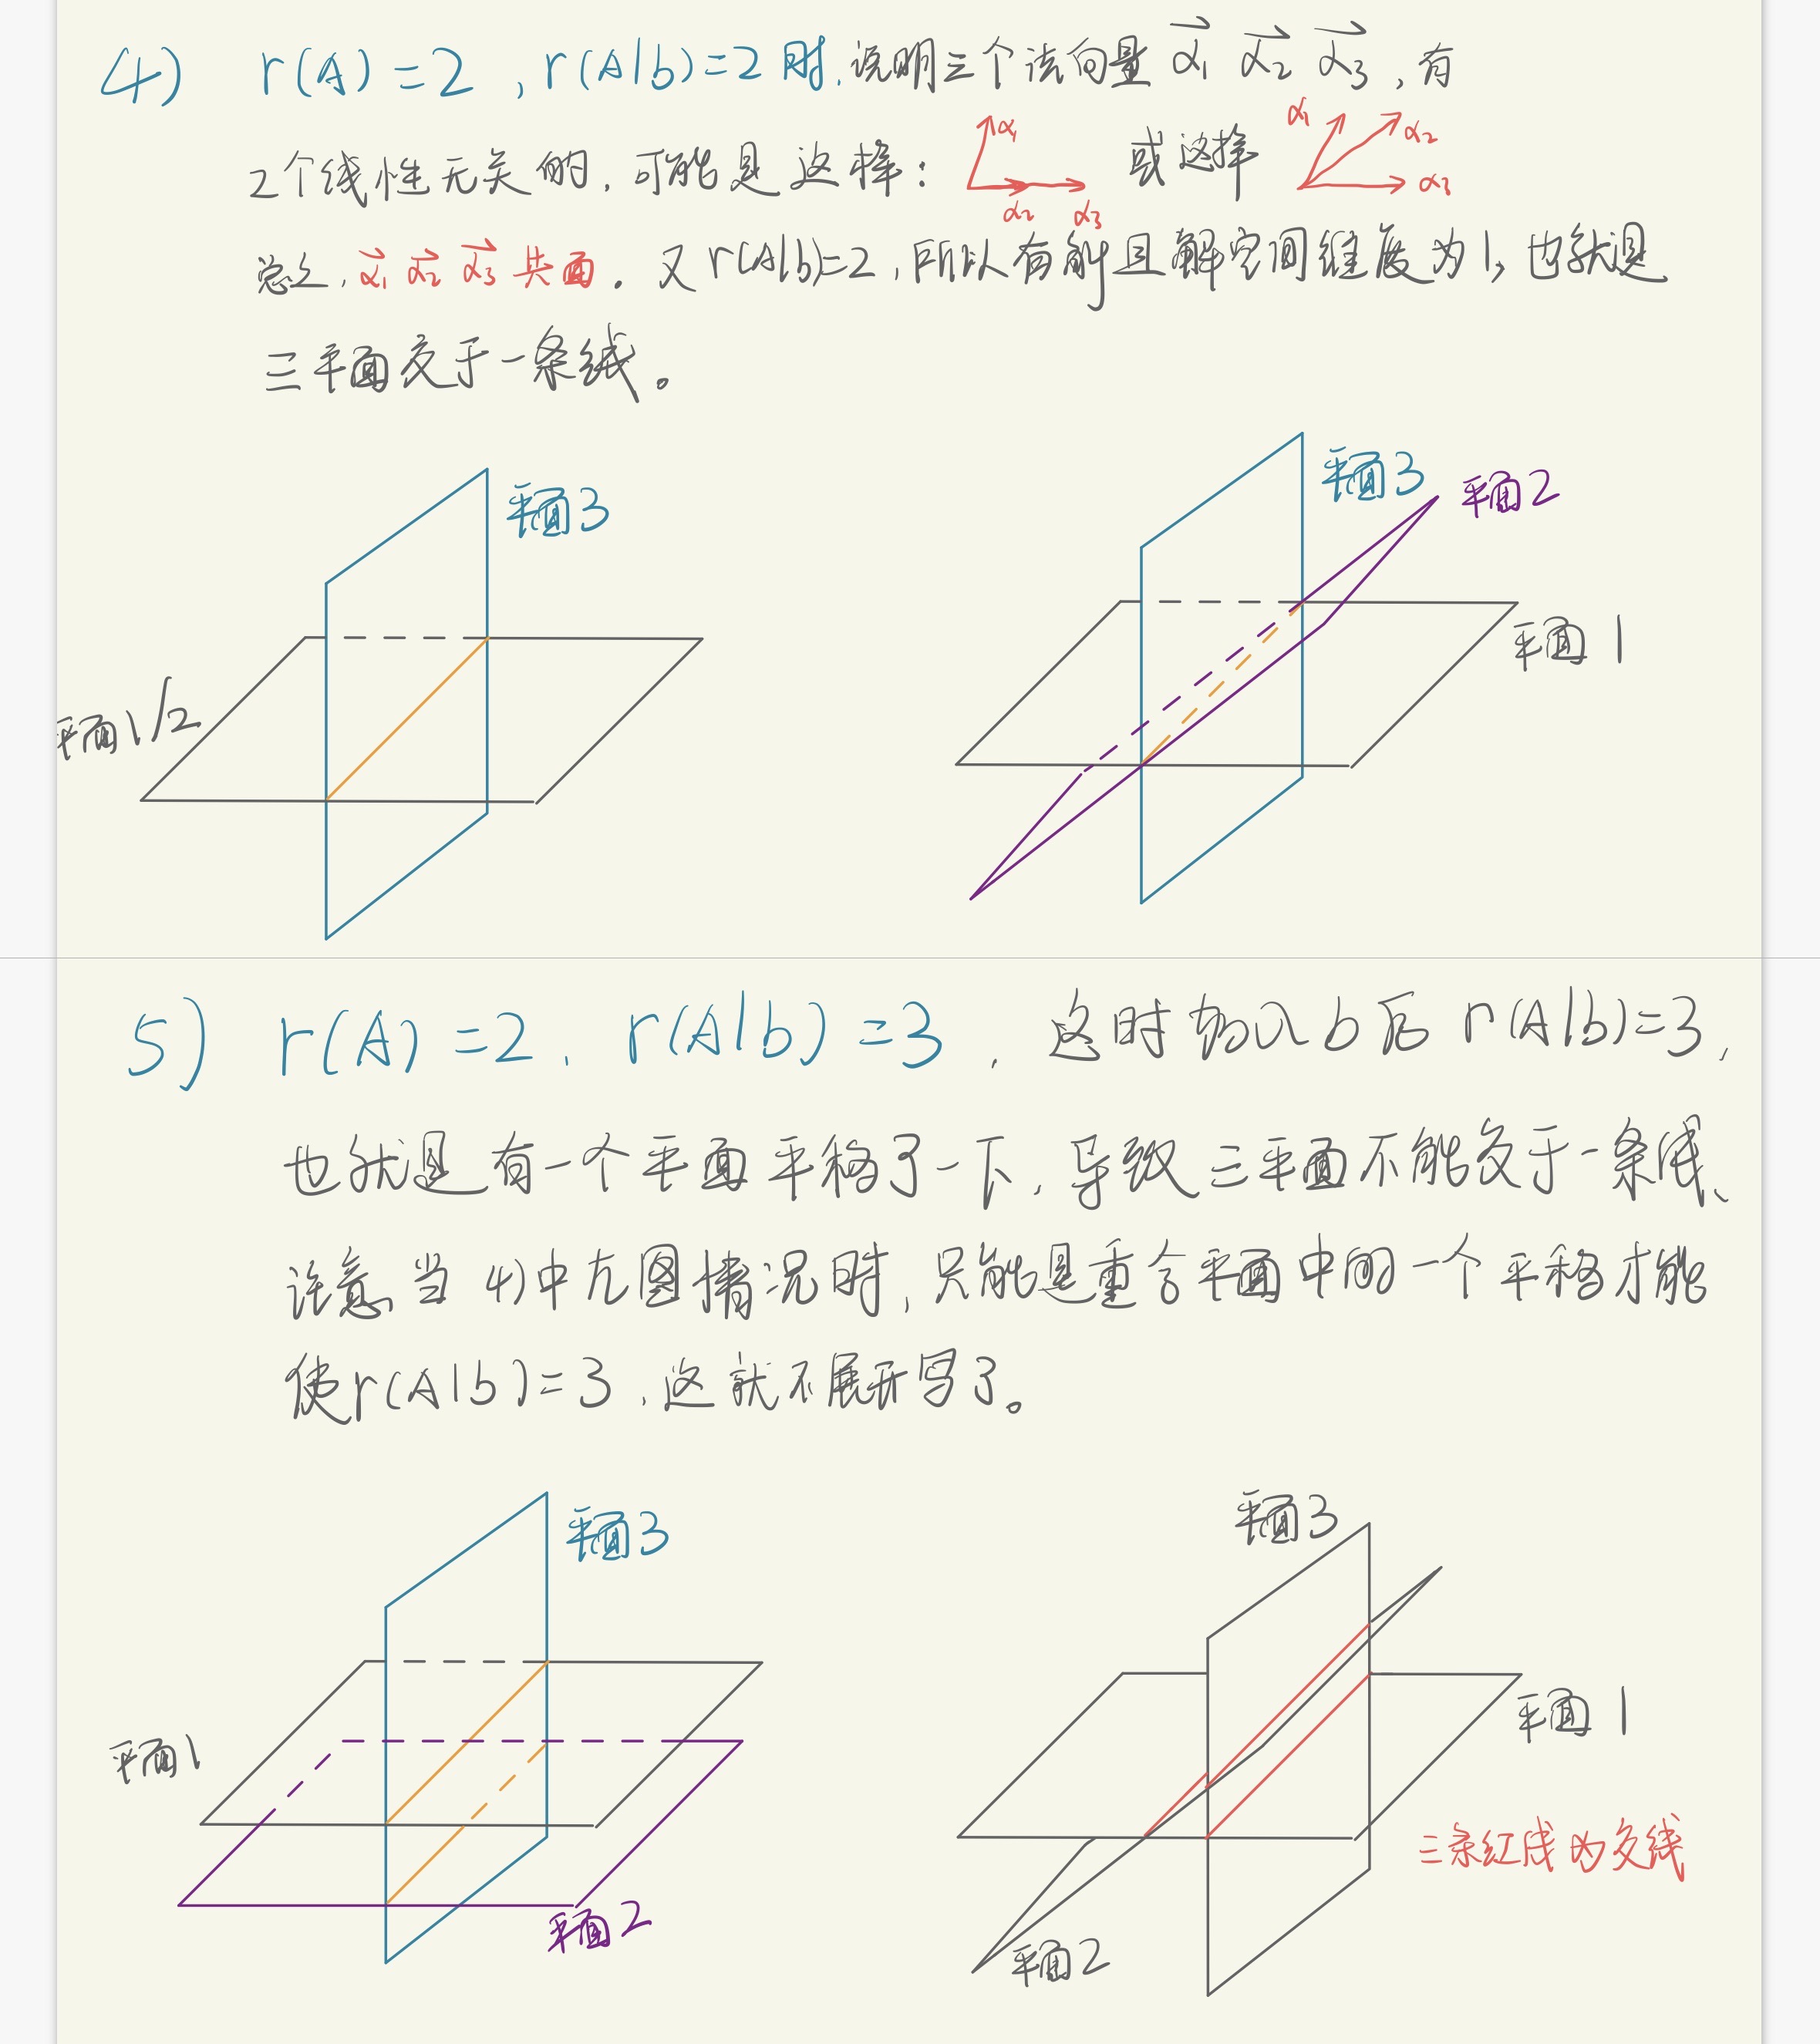 4) r(A)=2，r(A|b)=2时，说明三个法向量 α₁ α₂ α₃，有
2个线性无关的，可能是这样：α₁ α₂ α₃ 或这样 α₁ α₂ α₃
总之，α₁ α₂ α₃ 共面。又r(A|b)=2，所以有解且解空间维度为1，也就是
三平面交于一条线。
平面3
平面1/2
平面3
平面2
平面1
5) r(A)=2，r(A|b)=3，这时加入b后r(A|b)=3，
也就是有一个平面平移了一下，导致三平面不能交于一条线、
注意，当4)中左图情况时，只能是重合平面中的一个平移才能
使r(A|b)=3，这就不展开写了。
平面3
平面1
平面2
平面3
平面1
三条红线为交线
平面2